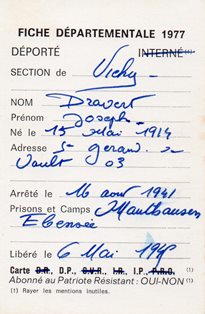 FICHE DÉPARTEMENTALE 1977
DÉPORTÉ INTERNÉ (1)
SECTION de Vichy
NOM Dravert
Prénom Joseph
Né le 15 Mai 1914
Adresse St Gerand de
Vault 03
Arrêté le 16 aout 1941
Prisons et Camps Mauthausen
Ebensee
Libéré le 6 Mai 1945
Carte D.R., D.P., C.V.R., I.R., I.P., P.R.O. (1)
Abonné au Patriote Résistant : OUI-NON (1)
(1) Rayer les mentions inutiles.